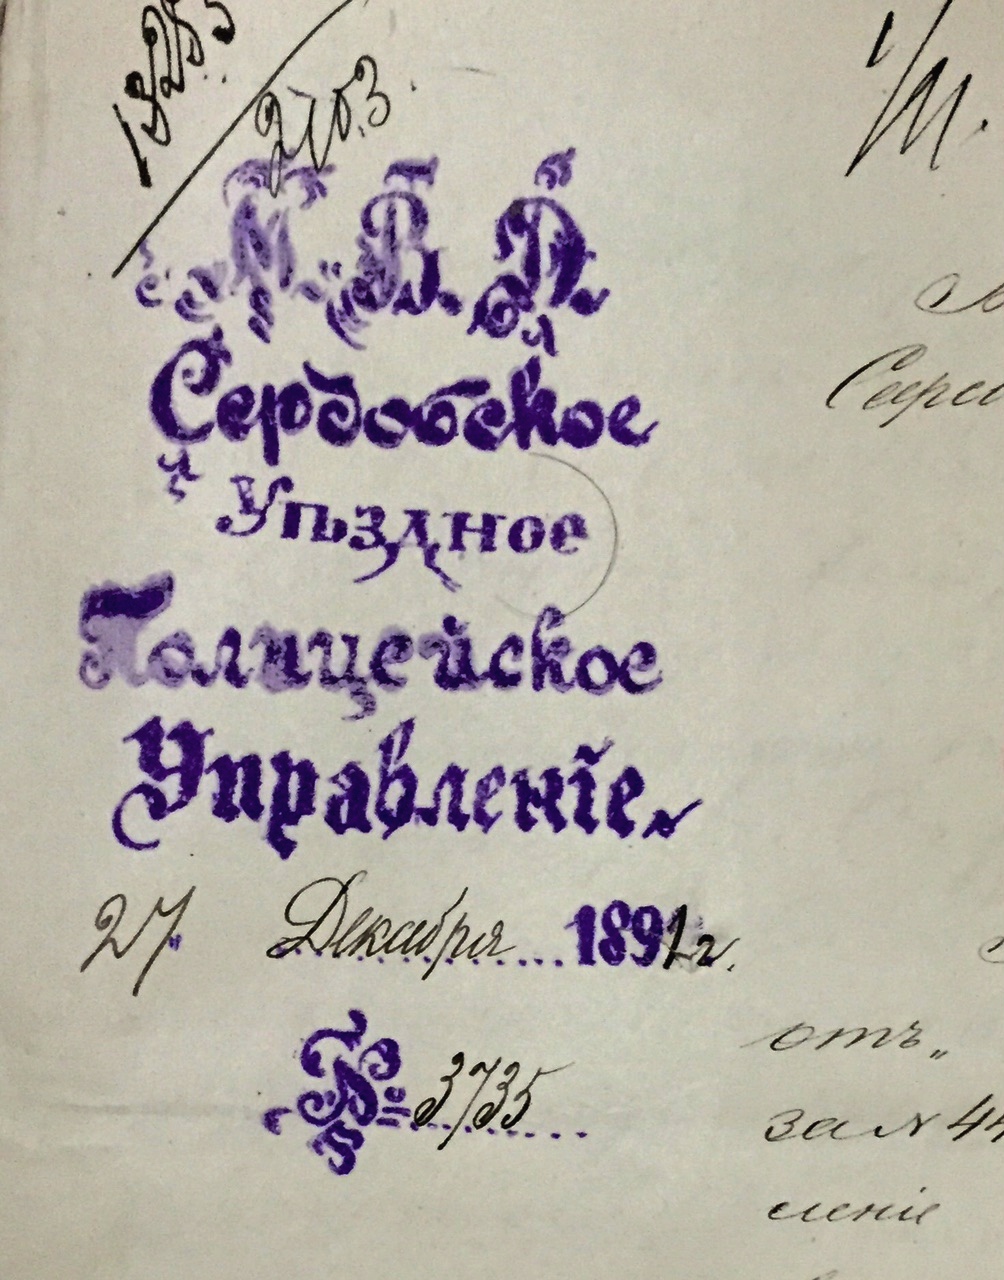 2703.
М. В. Д.
Сердобское
Уѣздное
Полицейское
Управленіе
27 Декабря 1891 г.
№ 3735
отъ „
за № 44
леніе